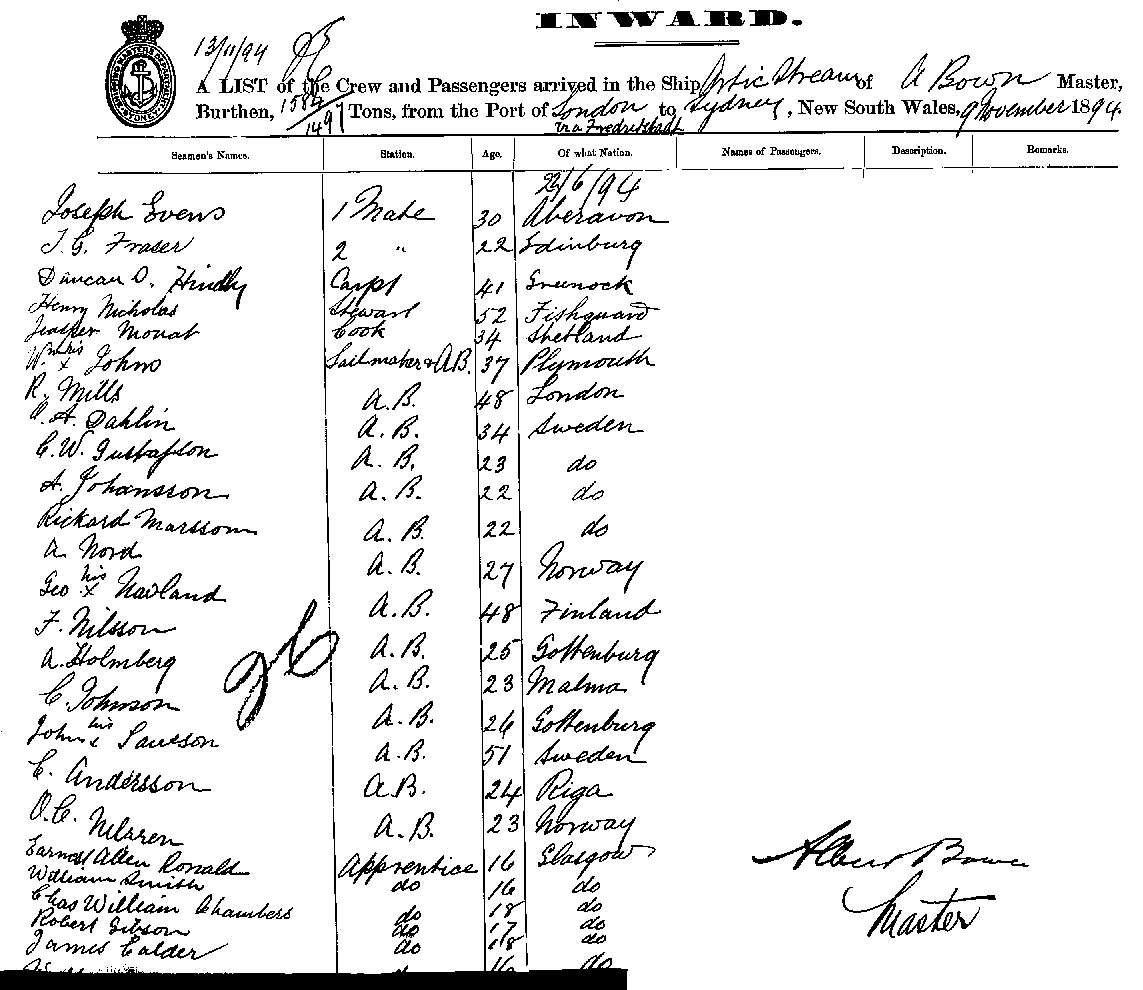 INWARD.
13/11/94
A LIST of the Crew and Passengers arrived in the Ship Artic Stream of A Bown Master,
Burthen, 1584/1497 Tons, from the Port of London to Sydney, New South Wales, 9 November 1894.
via Fredrikstadt
Seamen's Names. Station. Age. Of what Nation. Names of Passengers. Description. Remarks.
22/6/94
Joseph Evens 1 Mate 30 Aberavon
J. G. Fraser 2 " 22 Edinburg
Duncan D. Hindly Carpt 41 Greenock
Henry Nicholas Stewart 52 Fishguard
Jasper Mouat Cook 34 Shetland
Wm his x Johns Sailmaker & A.B. 37 Plymouth
R. Mills A.B. 48 London
A. Dahlin A.B. 34 Sweden
C. W. Gustafson A.B. 23 do
A. Johansson A.B. 22 do
Rickard Marssom A.B. 22 do
A. Nord A.B. 27 Norway
Geo his x Navland A.B. 48 Finland
F. Nilsson A.B. 25 Gottenburg
A. Holmberg A.B. 23 Malma
C. Johnson A.B. 26 Gottenburg
John his x Saueson A.B. 51 Sweden
C. Andersson A.B. 24 Riga
O. C. Nilaren A.B. 23 Norway
Earnest Allen Ronald Apprentice 16 Glasgow
William Smith do 16 do
Chas William Chambers do 18 do
Robert Gibson do 17 do
James Calder do 18 do
do 16 do
Albert Bown
Master